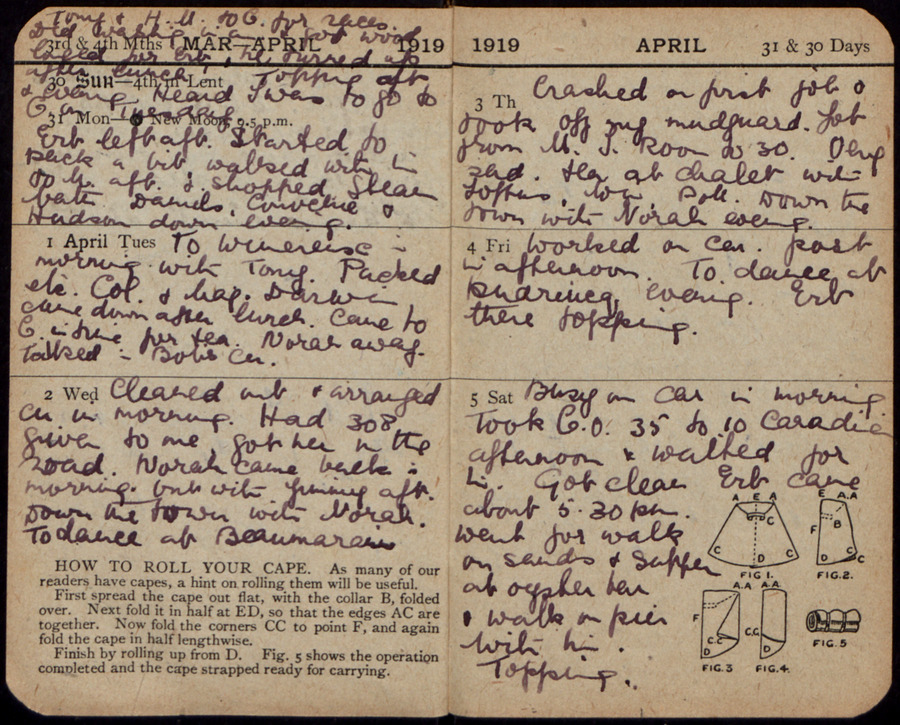 Tony & H. U. to C. for races.
Did washing in a. & got wood
3rd & 4th Mths MAR—APRIL 1919
for Erb, he turned up
after lunch. Topping aft
30 Sun—4th in Lent
& evening. Heard I was to go to
C. on Tuesday
31 Mon— New Moon 9.5 p.m.
Erb left aft. Started to
pack a bit walked with
aft. & shopped. Steam
bath Daniels,
Hudson down evening.
1 April Tues To Wimereux in
morning with Tony. Packed
etc. Col. & Mag. Darwin
came down after lunch. Came to
C in time for tea. Norah away.
Talked in Bobs Cu.
2 Wed Cleared out & arranged
cu in morning. Had 308
given to me, got her on the
road. Norah came back in
morning. out with Jimmy aft.
Down the town with Norah.
To dance at Beaumarais
HOW TO ROLL YOUR CAPE. As many of our
readers have capes, a hint on rolling them will be useful.
First spread the cape out flat, with the collar B, folded
over. Next fold it in half at ED, so that the edges AC are
together. Now fold the corners CC to point F, and again
fold the cape in half lengthwise.
Finish by rolling up from D. Fig. 5 shows the operation
completed and the cape strapped ready for carrying.
1919 APRIL 31 & 30 Days
3 Th Crashed on first job &
took off my mudguard. Job
from M. I. Room to 30.
2nd. tea at chalet with
Down the
town with Norah evening.
4 Fri Worked on car. post
in afternoon. To dance at
evening. Erb
there topping.
5 Sat Busy on car in morning
Took C.O. 35 to 10 Canadian
afternoon & waited for
him. Got clean Erb came
about 5.30 pm.
went for walk
on sands & supper
at oyster bar
& walk on pier
with him.
Topping.
A E A
C
C D C
FIG 1.
E A.A
F B
D C C
FIG.2.
A.A
F
C.C
D
FIG.3
A.A
C.C
D
FIG.4.
FIG.5